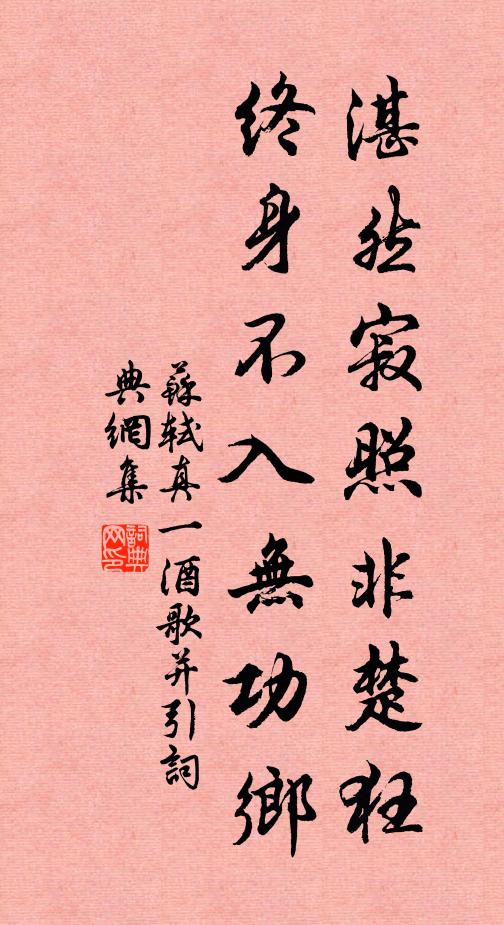 湛然寂照非楚狂
終身不入無功鄉
蘇軾真一酒歌并引詞
典網集
詞典網印